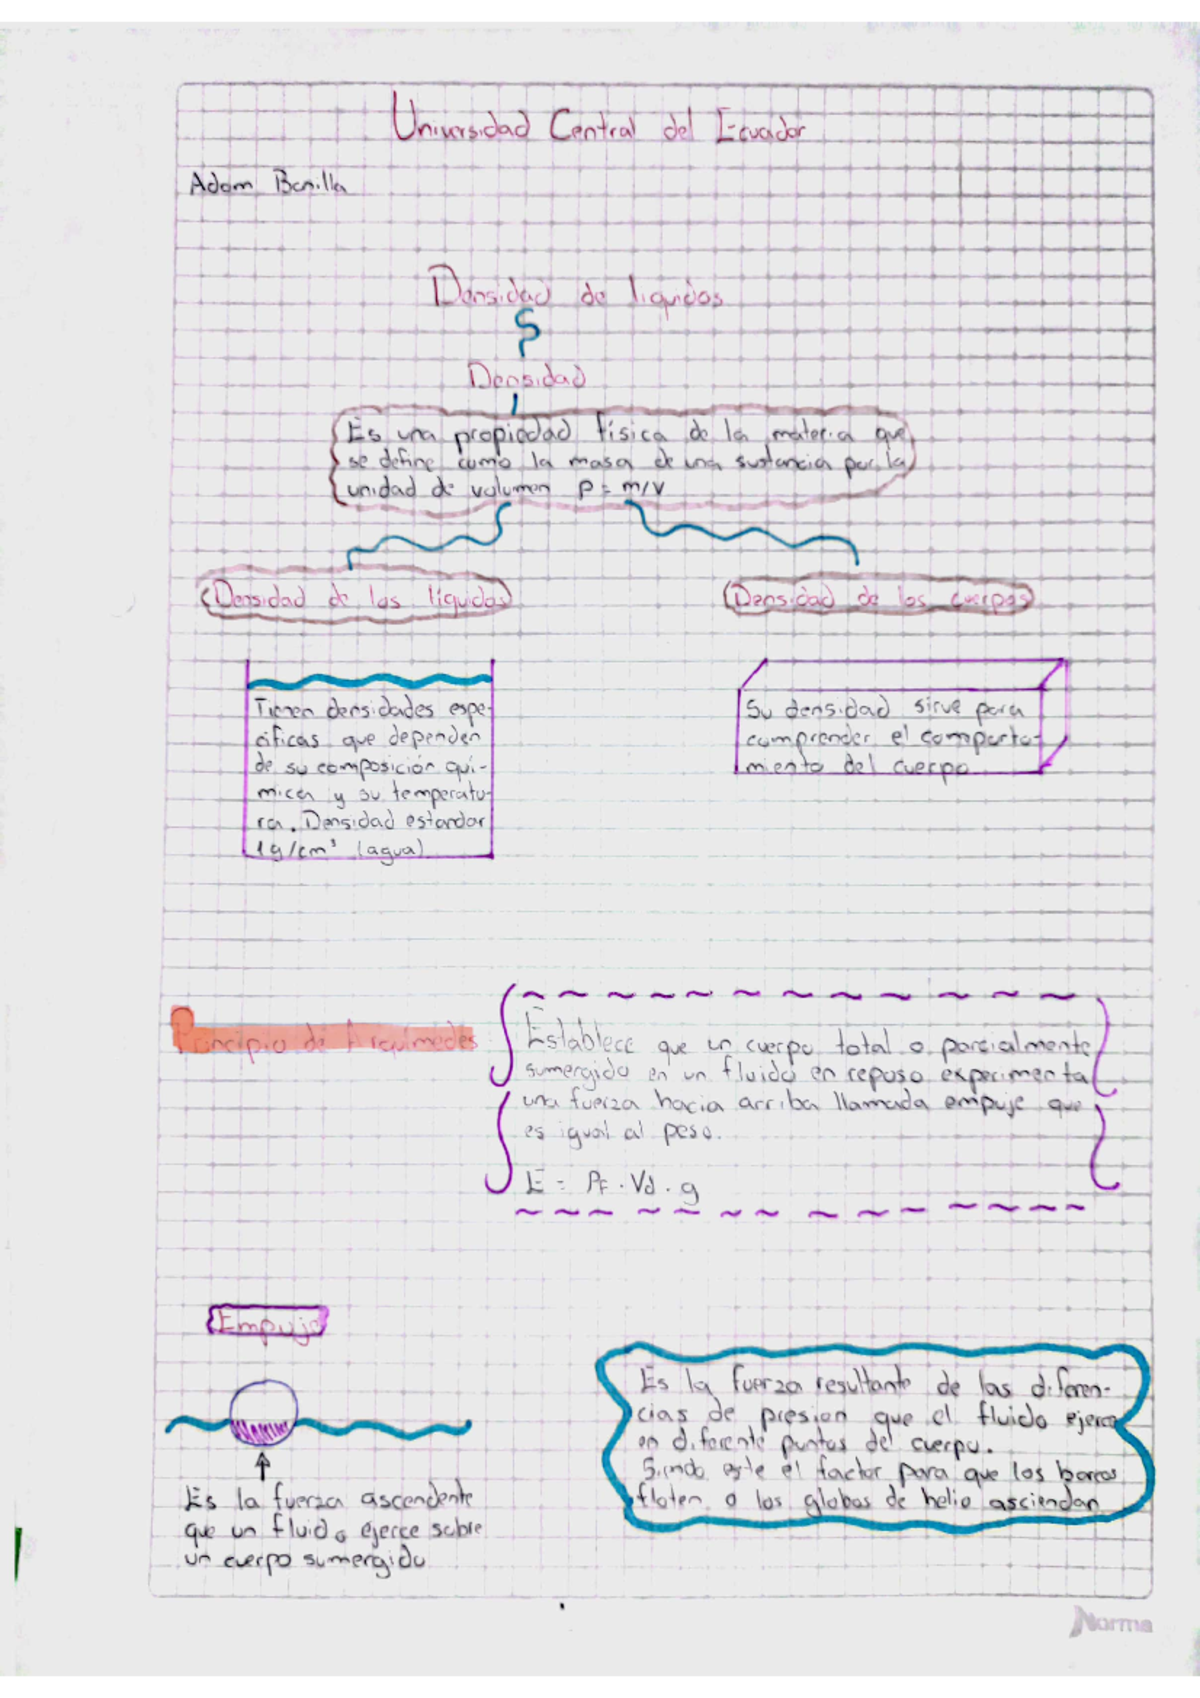 Universidad Central del Ecuador
Adam Bonilla
Densidad de liquidos
Densidad
Es una propiedad física de la materia que
se define como la masa de una sustancia por la
unidad de volumen ρ = m/v
Densidad de los líquidos
Densidad de los cuerpos
Tienen densidades espe-
cíficas que dependen
de su composición quí-
mica y su temperatu-
ra. Densidad estandar
1g/cm³ (agua)
Su densidad sirve para
comprender el comporta-
miento del cuerpo
Principio de Arquimedes
Establece que un cuerpo total o parcialmente
sumergido en un fluido en reposo experimenta
una fuerza hacia arriba llamada empuje que
es igual al peso.
E = Pf · Vd · g
Empuje
Es la fuerza ascendente
que un fluido ejerce sobre
un cuerpo sumergido
Es la fuerza resultante de las diferen-
cias de presion que el fluido ejerce
en diferente puntos del cuerpo.
Siendo este el factor para que los barcos
floten o los globos de helio asciendan
Norma